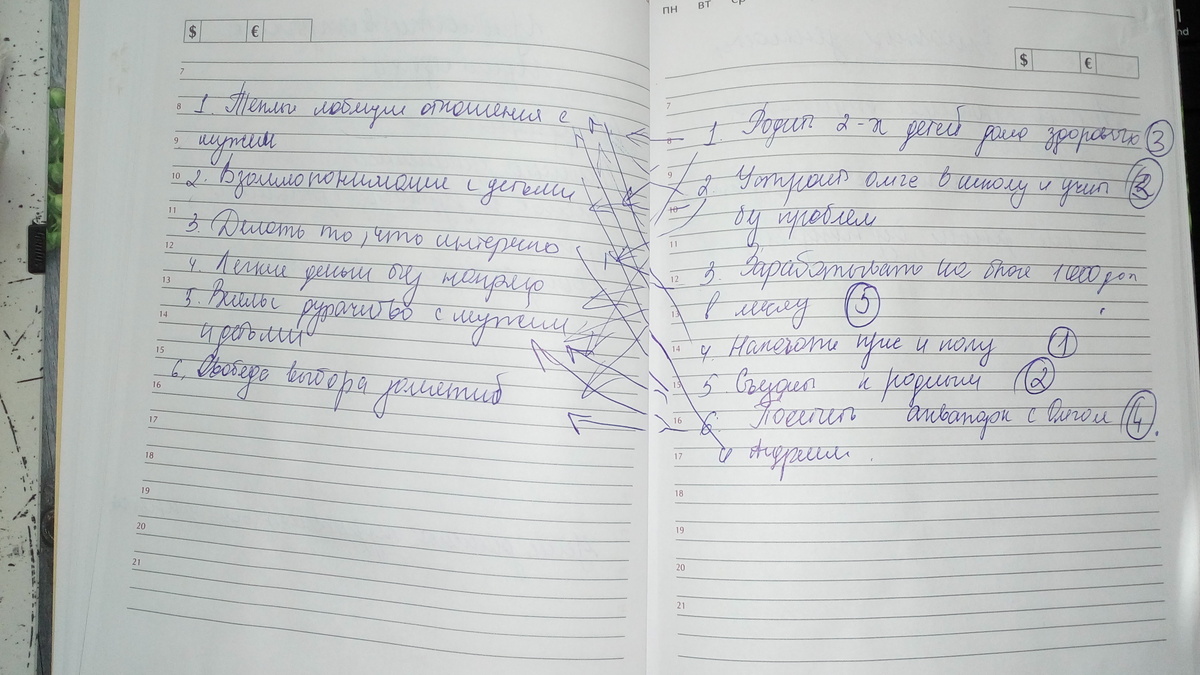 $ €
7
8 1. Теплые любящие отношения с
9 мужем
10 2. Взаимопонимание с детьми
11 3. Делать то, что интересно
12 4. Легкие деньги без
13 5. с мужем
14 и детьми
15 6. Свобода выбора
16
17
18
19
20
21
пн вт ср
$ €
7
8 1 Родить 2-х детей дома здоровых 3
9 2. Устроить Олега в школу и учить
10 без проблем
11
12 3. Зарабатывать на блоге 1000 дол
13 в месяц 5
14 4. и 1
15 5. Съездить к родным 2
16 6. Посетить аквапарк с Олегом 4.
17 и Андреем.
18
19
20
21